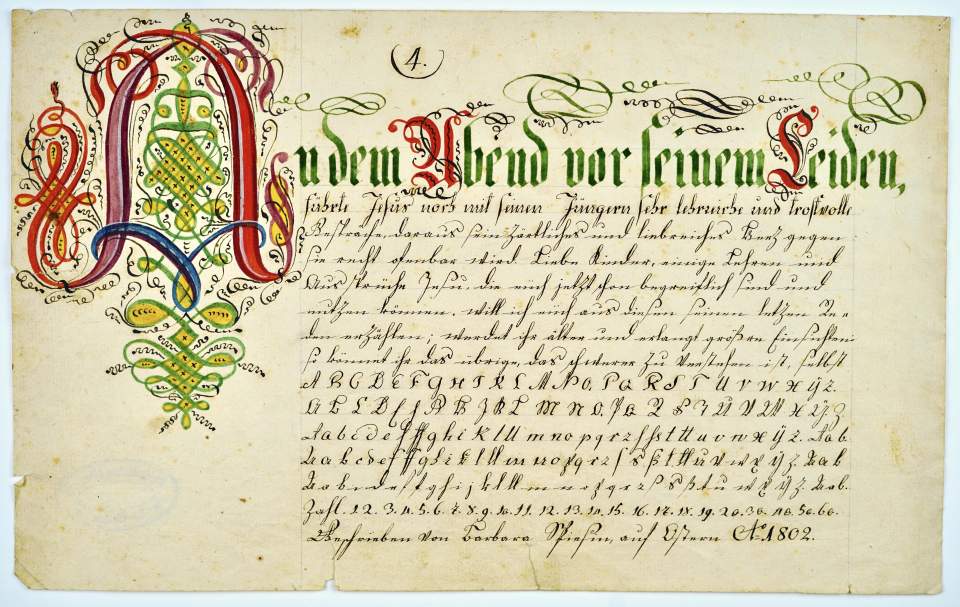 4.
An dem Abend vor seinem Leiden,
führte Jesus noch mit seinen Jüngern sehr lehrreiche und trostvolle
Gespräche, daraus sein zärtliches und liebreiches Herz gegen
sie recht ofenbar wird. Liebe Kinder, einige Lehren und
Aussprüche Jesu, die euch jetzt schon begreiflich sind und
nutzen können, will ich euch aus diesen seinen letzen Re=
den erzählen; werdet ihr älter und erlangt größre Einsichten
so könnet ihr das übrige, das schwerer zu verstehen ist, selbst
A B C D E F G H I K L M N O P Q R S T U V W X Y Z.
A B C D E F G H J K L M N O P Q R S T U V W X Y Z
A a b c d e f f g h i k l ll m n o p q r z s s t tt u v w x ÿ z. A a b.
A a b c d e f f g h i k l ll m n o p q r z s ß t tt u v w x ÿ z. A a b
A a b c d e f g h i j k l ll m n o p q r z s ß t u w x ÿ z. A a b.
Zahl. 1. 2. 3. 4. 5. 6. 7. 8. 9. 10. 11. 12. 13. 14. 15. 16. 17. 18. 19. 20. 30. 40. 50. 60.
Geschrieben von Barbara Spiesin, auf Ostern Ao. 1802.